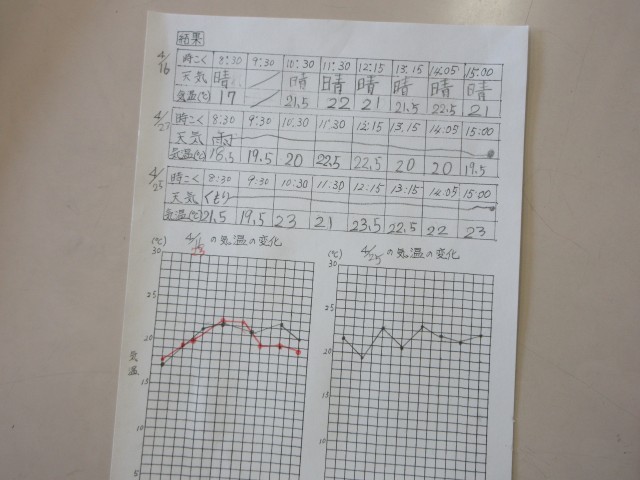 結果
4/16 時こく 8:30 9:30 10:30 11:30 12:15 13:15 14:05 15:00
天気 晴 晴 晴 晴 晴 晴 晴
気温(℃) 17 21.5 22 21 21.5 22.5 21
4/23 時こく 8:30 9:30 10:30 11:30 12:15 13:15 14:05 15:00
天気 雨
気温(℃) 18.5 19.5 20 22.5 22.5 20 20 19.5
4/25 時こく 8:30 9:30 10:30 11:30 12:15 13:15 14:05 15:00
天気 くもり
気温(℃) 21.5 19.5 23 21 23.5 22.5 22 23
(℃) 4/16 の気温の変化
23
30
25
20
気温
15
10
5
(℃) 4/25 の気温の変化
30
25
20
10